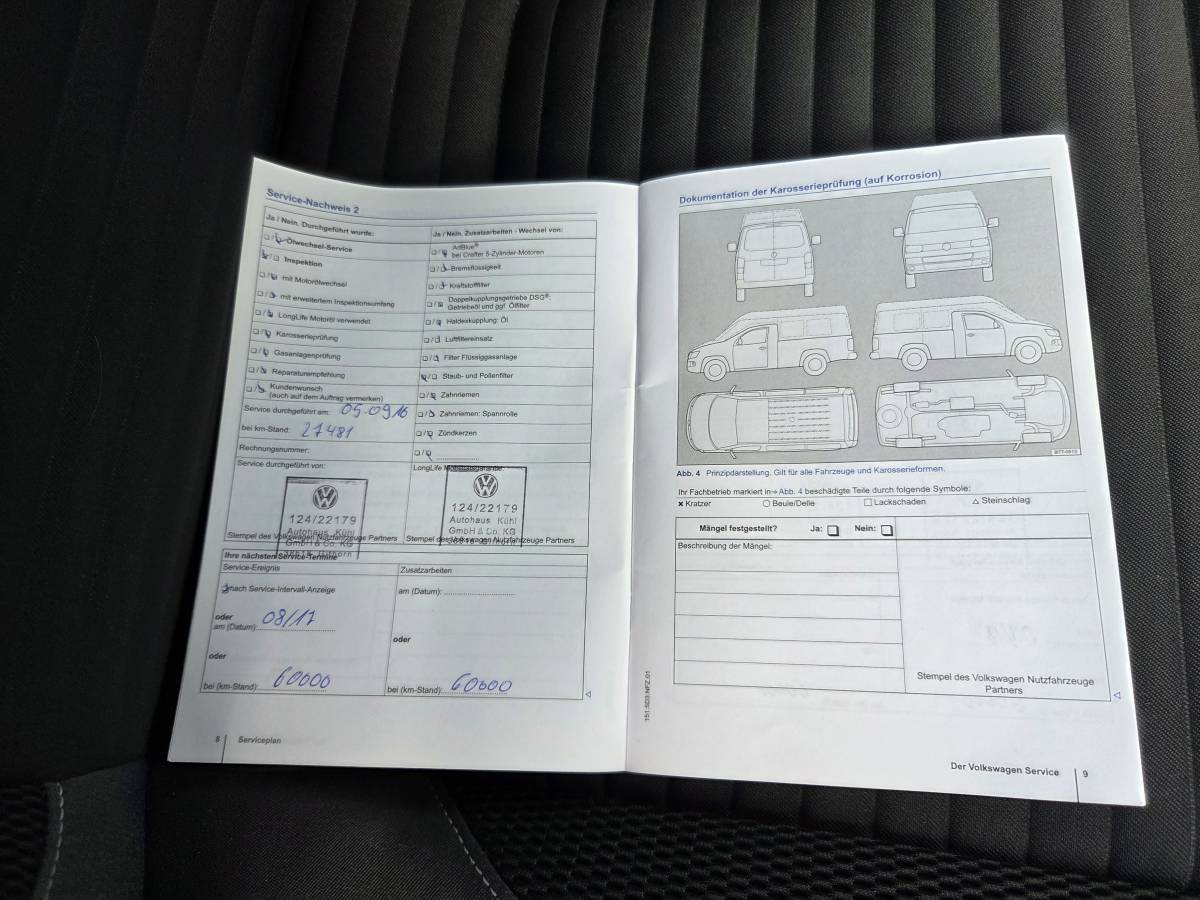 Service-Nachweis 2
Ja / Nein. Durchgeführt wurde:
Ölwechsel-Service
Inspektion
mit Motorölwechsel
mit erweitertem Inspektionsumfang
LongLife Motoröl verwendet
Karosserieprüfung
Gasanlagenprüfung
Reparaturempfehlung
Kundenwunsch
(auch auf dem Auftrag vermerken)
Service durchgeführt am: 05.09.16
bei km-Stand: 27481
Rechnungsnummer:
Service durchgeführt von:
124/22179
Autohaus Kühl
GmbH & Co. KG
Stempel des Volkswagen Nutzfahrzeuge Partners
Ja / Nein. Zusatzarbeiten - Wechsel von:
AdBlue®
bei Crafter 5-Zylinder-Motoren
Bremsflüssigkeit
Kraftstofffilter
Doppelkupplungsgetriebe DSG®:
Getriebeöl und ggf. Ölfilter
Haldexkupplung: Öl
Luftfiltereinsatz
Filter Flüssiggasanlage
Staub- und Pollenfilter
Zahnriemen
Zahnriemen: Spannrolle
Zündkerzen
LongLife
124/22179
Autohaus Kühl
GmbH & Co. KG
Stempel des Volkswagen Nutzfahrzeuge Partners
Ihre nächsten Service-Termine
Service-Ereignis
nach Service-Intervall-Anzeige
oder
am (Datum): 08/17
oder
bei (km-Stand): 60000
Zusatzarbeiten
am (Datum):
oder
bei (km-Stand): 60000
8 Serviceplan
Dokumentation der Karosserieprüfung (auf Korrosion)
Abb. 4 Prinzipdarstellung. Gilt für alle Fahrzeuge und Karosserieformen.
Ihr Fachbetrieb markiert in ⇒ Abb. 4 beschädigte Teile durch folgende Symbole:
Kratzer Beule/Delle Lackschaden Steinschlag
Mängel festgestellt? Ja: Nein:
Beschreibung der Mängel:
Stempel des Volkswagen Nutzfahrzeuge
Partners
151.5D3.NFZ.01
Der Volkswagen Service 9